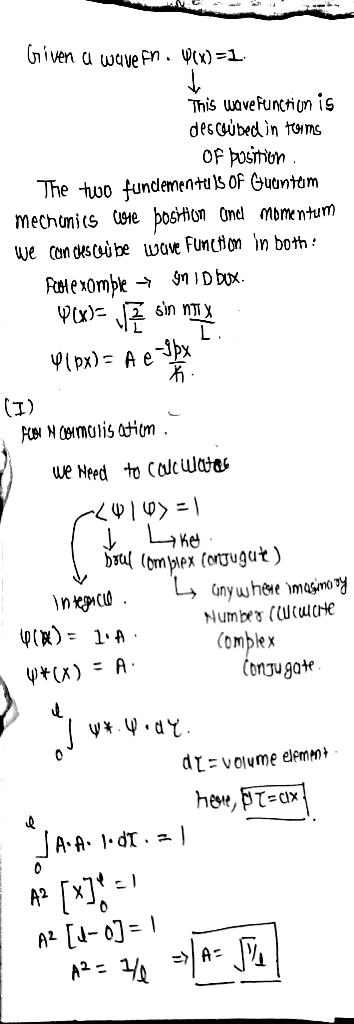 Given a wave Fn. ψ(x)=1.
↓
This wave Function is
described in terms
OF position.
The two fundementals OF Quantam
mechanics are position and momentum
we can describe wave Function in both:
For example → In 1D box.
ψ(x)= √2/L sin nπx/L.
ψ(px)= A e^-ipx/ħ.
(I)
For Normalisation.
we Need to Calculates
<ψ|ψ> = 1
↓ ↳ Ket
bra( complex conjugate)
↳ anywhere imaginary
Integral. Number calculate
ψ(x) = 1.A. Complex
ψ*(x) = A. Conjugate.
∫₀ˡ ψ*.ψ.dτ.
dτ = volume element.
here, dτ=dx
∫₀ˡ A.A. 1.dτ. = 1
A² [x]₀ˡ = 1
A² [l-0] = 1
A² = 1/l ⇒ A = √1/l